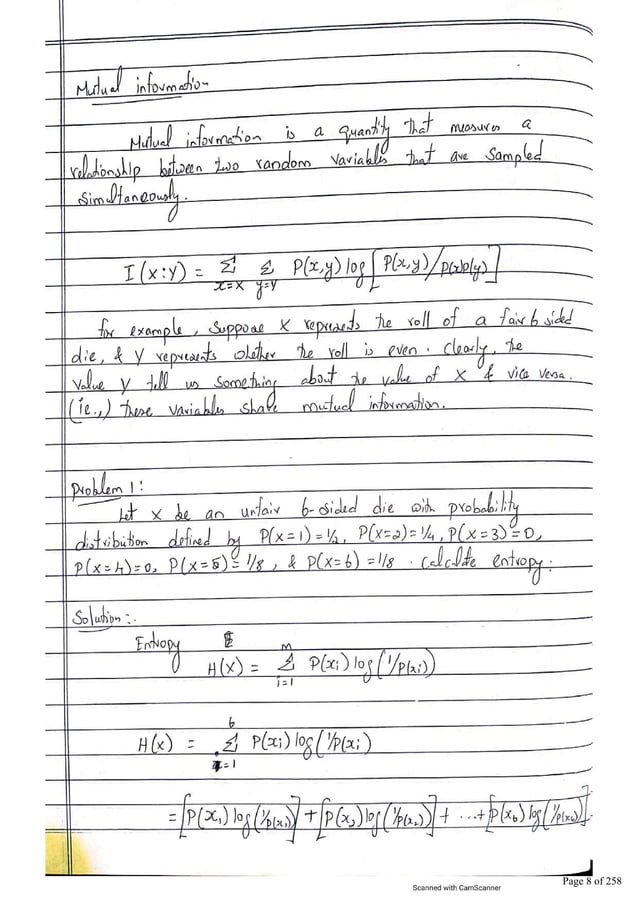 Mutual information
Mutual information is a quantity that measures a
relationship between two random variables that are sampled
simultaneously.
I(x:y) = Σ Σ P(x,y) log [P(x,y)/p(x)p(y)]
x=X y=Y
for example, suppose X represents the roll of a fair 6 sided
die, & Y represents whether the roll is even. Clearly, the
value Y tell us something about the value of X & vice versa.
(ie.,) these variables share mutual information.
Problem 1:
Let X be an unfair 6-sided die with probability
distribution defined by P(X=1)=1/2, P(X=2)=1/4, P(X=3)=0,
P(X=4)=0, P(X=5)=1/8, & P(X=6)=1/8. Calculate entropy:
Solution:-
Entropy
m
H(X) = Σ P(xi) log(1/P(xi))
i=1
6
H(x) = Σ P(xi) log(1/P(xi)
i=1
= [P(x1) log(1/p(x1))] + [P(x2) log(1/P(x2))] + ...+ [P(x6) log(1/P(x6))]
Scanned with CamScanner
Page 8 of 258